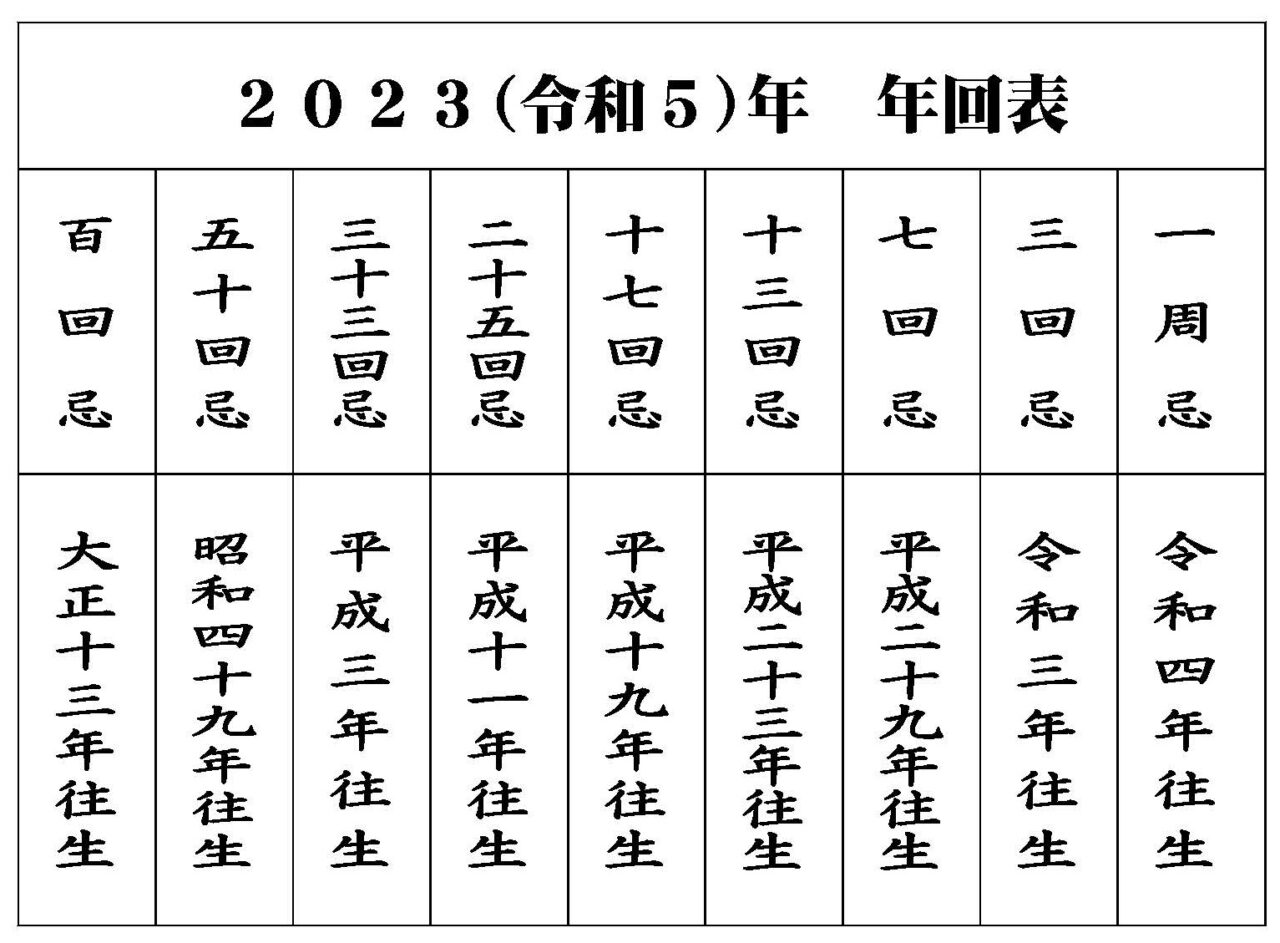 ２０２３(令和５)年　年回表
一周忌
令和四年往生
三回忌
令和三年往生
七回忌
平成二十九年往生
十三回忌
平成二十三年往生
十七回忌
平成十九年往生
二十五回忌
平成十一年往生
三十三回忌
平成三年往生
五十回忌
昭和四十九年往生
百回忌
大正十三年往生